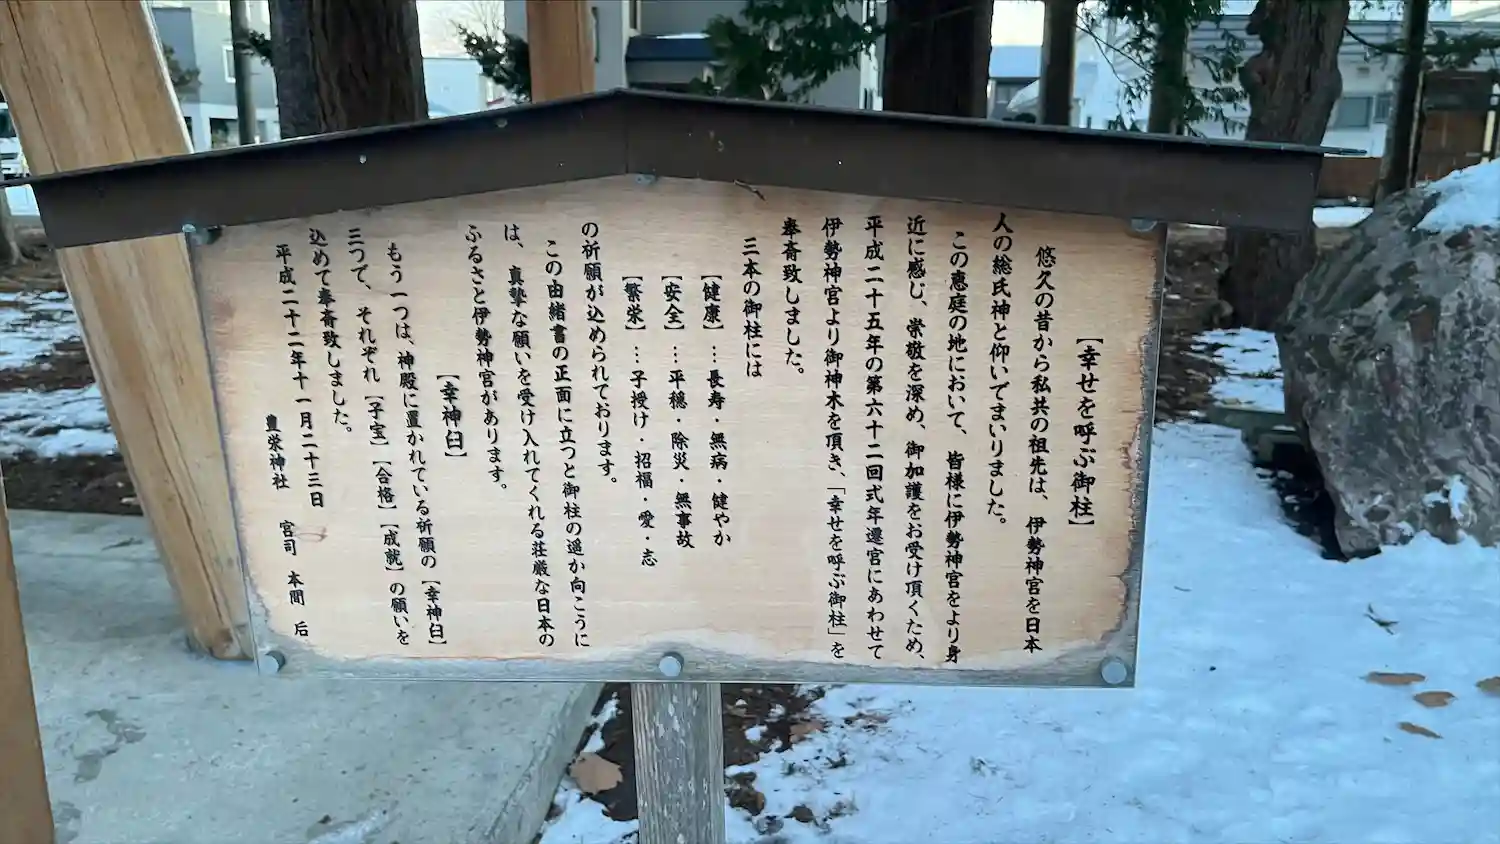 【幸せを呼ぶ御柱】
悠久の昔から私共の祖先は、伊勢神宮を日本
人の総氏神と仰いでまいりました。
この恵庭の地において、皆様に伊勢神宮をより身
近に感じ、崇敬を深め、御加護をお受け頂くため、
平成二十五年の第六十二回式年遷宮にあわせて
伊勢神宮より御神木を頂き、「幸せを呼ぶ御柱」を
奉斎致しました。
三本の御柱には
【健康】…長寿・無病・健やか
【安全】…平穏・除災・無事故
【繁栄】…子授け・招福・愛・志
の祈願が込められております。
この由緒書の正面に立つと御柱の遥か向こうに
は、真摯な願いを受け入れてくれる荘厳な日本の
ふるさと伊勢神宮があります。
【幸神臼】
もう一つは、神殿に置かれている祈願の【幸神臼】
三つて、それぞれ【子宝】【合格】【成就】の願いを
込めて奉斎致しました。
平成二十二年十一月二十三日
豊栄神社　宮司　本間　后